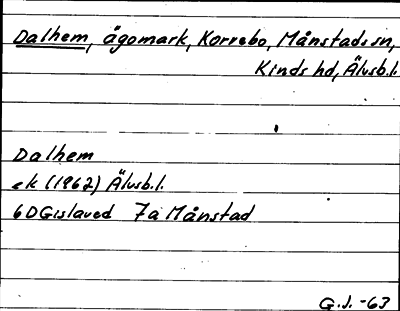 Dalhem, ägomark, Korrebo, Månstads sn,
Kinds hd, Älvsb.l.
Dalhem
ek (1962) Älvsb.l.
6D Gislaved 7a Månstad
G.J. -63